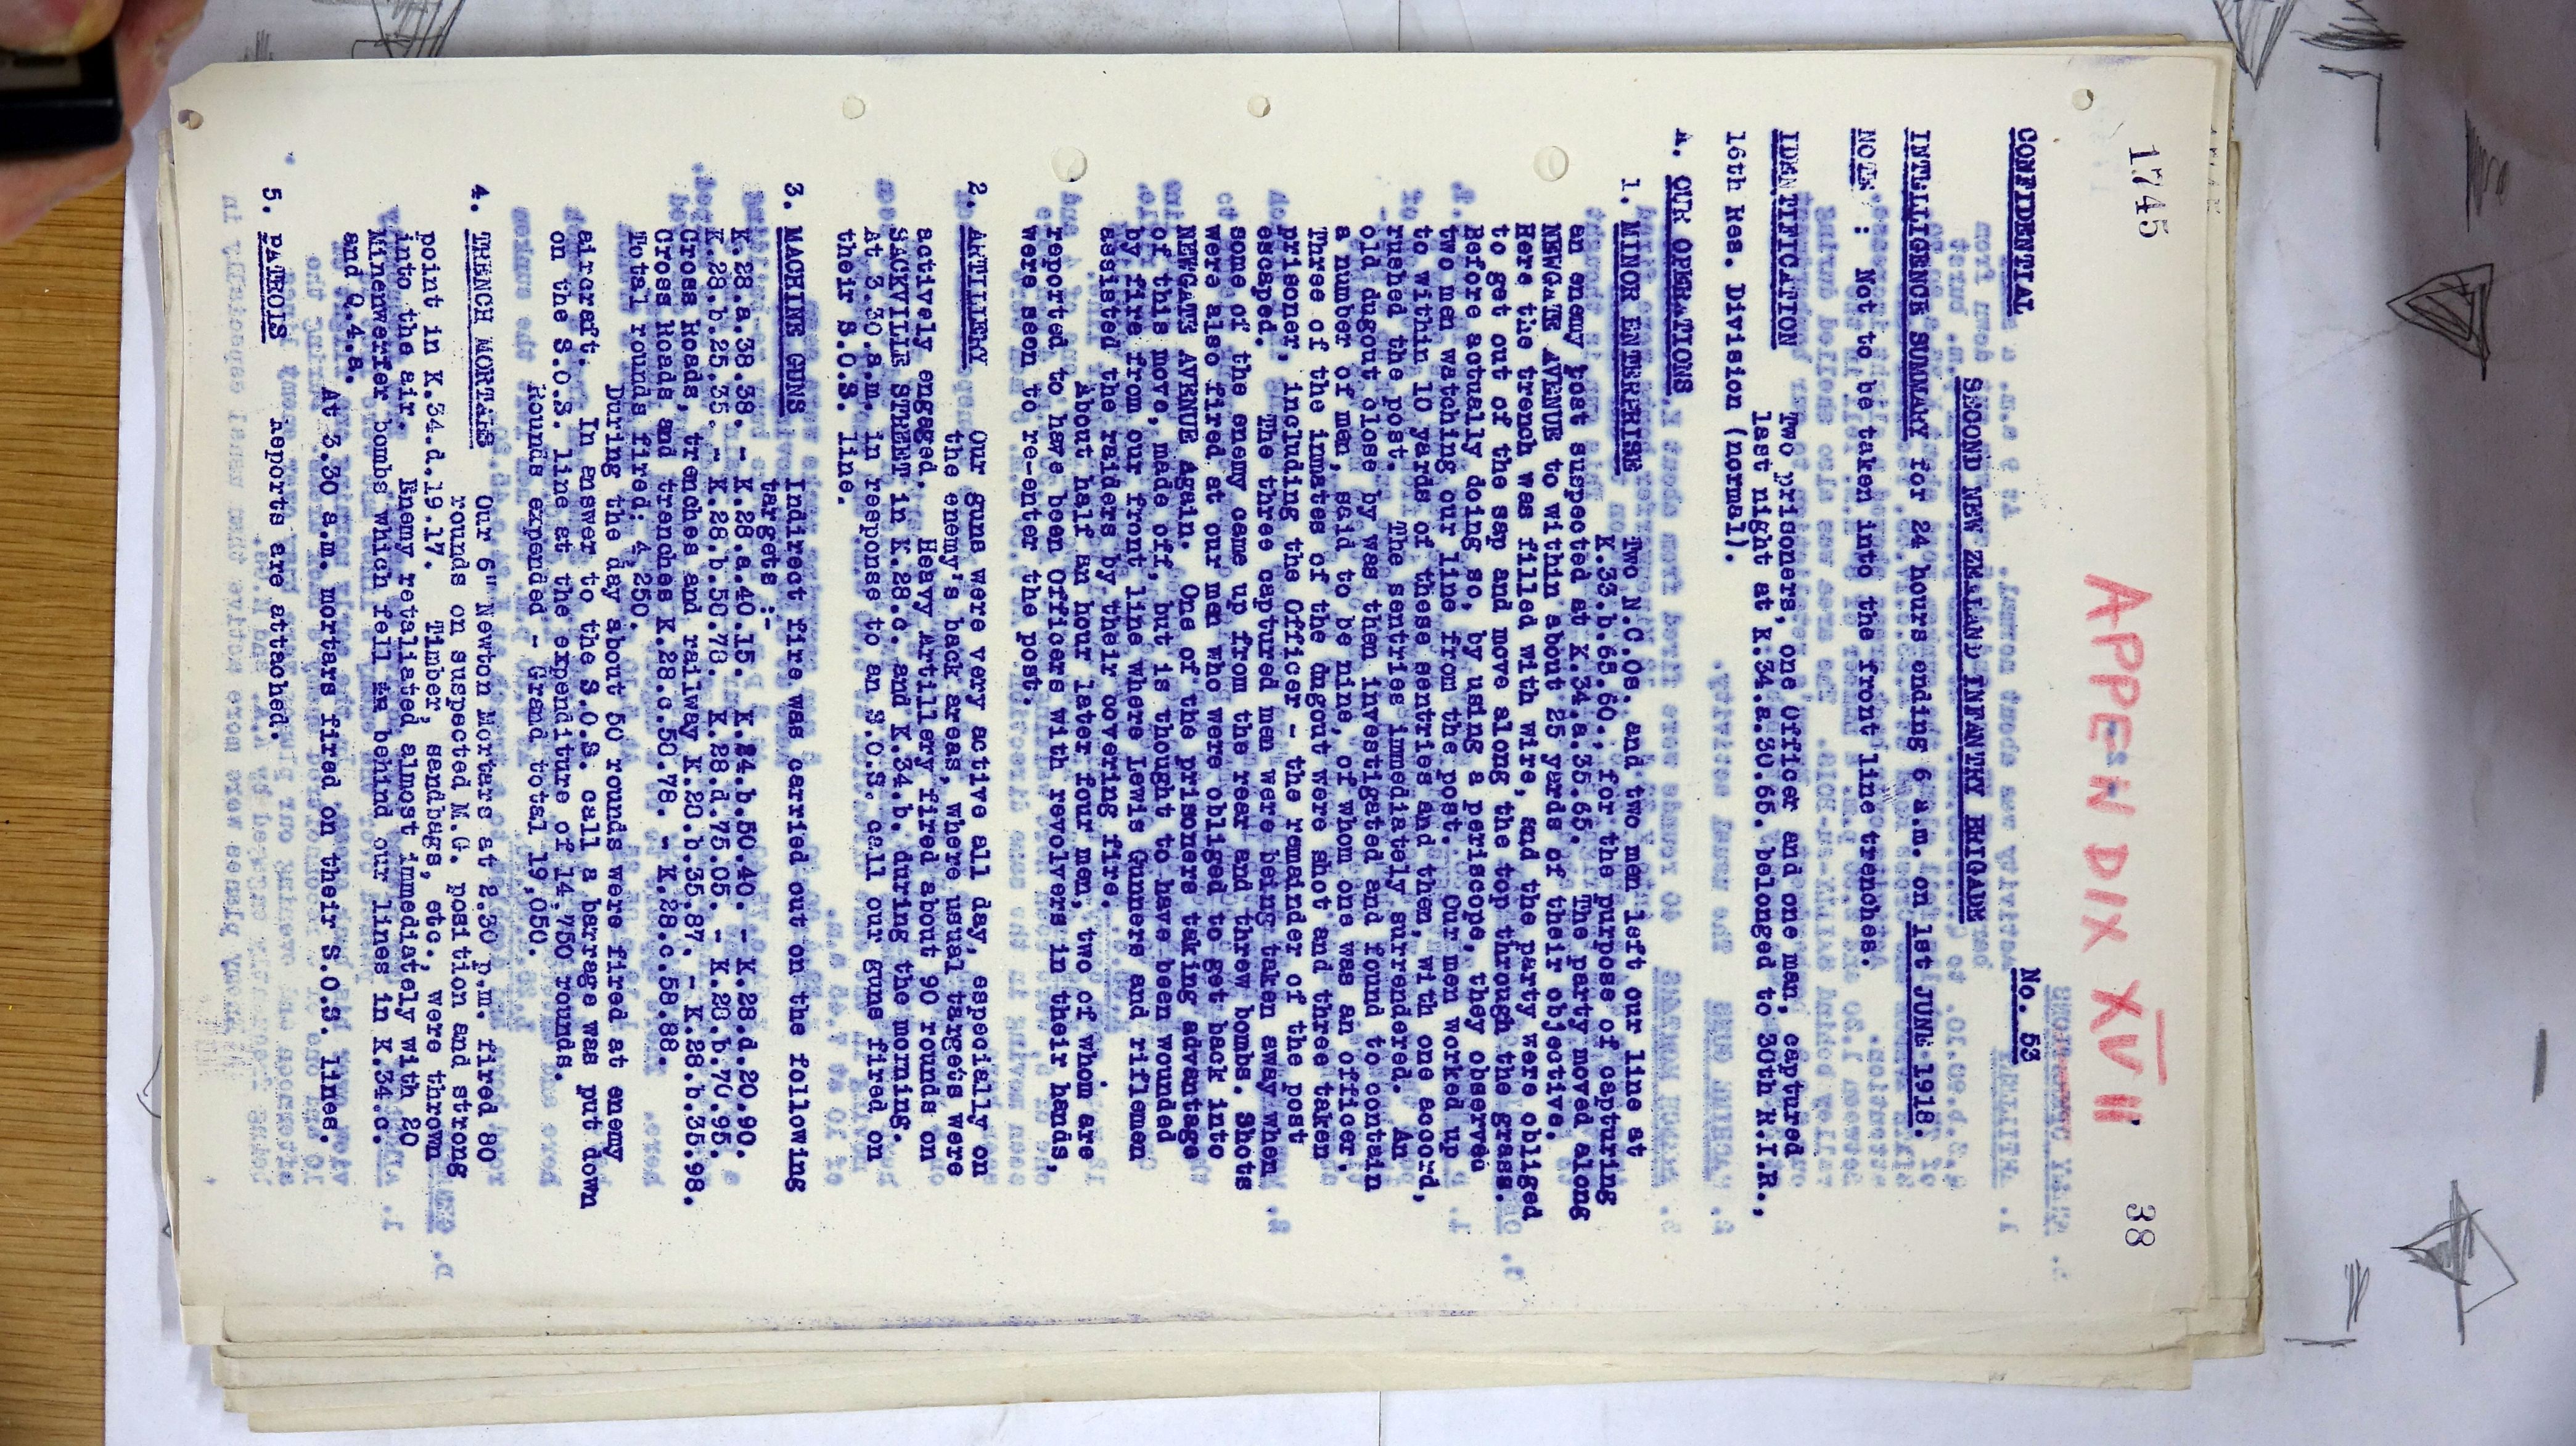 1745
38
APPENDIX XVII
CONFIDENTIAL
No. 53
SECOND NEW ZEALAND INFANTRY BRIGADE
INTELLIGENCE SUMMARY for 24 hours ending 6 a.m. on 1st JUNE 1918.
NOTE : Not to be taken into the front line trenches.
IDENTIFICATION Two prisoners, one Officer and one man, captured
last night at K.34.a.30.65. belonged to 30th R.I.R.,
16th Res. Division (normal).
A. OUR OPERATIONS
1. MINOR ENTERPRISE Two N.C.Os. and two men left our line at
K.33.b.65.60., for the purpose of capturing
an enemy post suspected at K.34.a.35.65. The party moved along
NEWGATE AVENUE to within about 25 yards of their objective.
Here the trench was filled with wire, and the party were obliged
to get out of the sap and move along the top through the grass.
Before actually doing so, by using a periscope, they observed
two men watching our line from the post. Our men worked up
to within 10 yards of these sentries and then, with one accord,
rushed the post. The sentries immediately surrendered. An
old dugout close by was then investigated and found to contain
a number of men, said to be nine, of whom one was an officer.
Three of the inmates of the dugout were shot and three taken
prisoner, including the Officer - the remainder of the post
escaped. The three captured men were being taken away when
some of the enemy came up from the rear and threw bombs. Shots
were also fired at our men who were obliged to get back into
NEWGATE AVENUE again. One of the prisoners taking advantage
of this move, made off, but is thought to have been wounded
by fire from our front line where Lewis Gunners and riflemen
assisted the raiders by their covering fire.
About half an hour later four men, two of whom are
reported to have been Officers with revolvers in their hands,
were seen to re-enter the post.
2. ARTILLERY Our guns were very active all day, especially on
the enemy's back areas, where usual targets were
actively engaged. Heavy Artillery fired about 90 rounds on
SACKVILLE STREET in K.28.c. and K.34.b. during the morning.
At 3.30 a.m. in response to an S.O.S. call our guns fired on
their S.O.S. line.
3. MACHINE GUNS Indirect fire was carried out on the following
targets :-
K.28.a.38.38. - K.28.a.40.15. K.24.b.50.40. - K.28.d.20.90.
K.28.b.25.35. - K.28.b.50.78. K.28.d.75.05. - K.28.b.70.95.
Cross Roads, trenches and railway K.28.b.35.87. - K.28.b.35.98.
Cross Roads and trenches K.28.c.50.78. - K.28.c.58.88.
Total rounds fired: 4,250.
During the day about 50 rounds were fired at enemy
aircraft. In answer to the S.O.S. call a barrage was put down
on the S.O.S. line at the expenditure of 14,750 rounds.
Rounds expended - Grand total 19,050.
4. TRENCH MORTARS Our 6" Newton Mortars at 2.30 p.m. fired 80
rounds on suspected M.G. position and strong
point in K.34.d.19.17. Timber, sandbags, etc., were thrown
into the air. Enemy retaliated almost immediately with 20
Minenwerfer bombs which fell in behind our lines in K.34.c.
and Q.4.a.
At 3.30 a.m. mortars fired on their S.O.S. lines.
5. PATROLS Reports are attached.